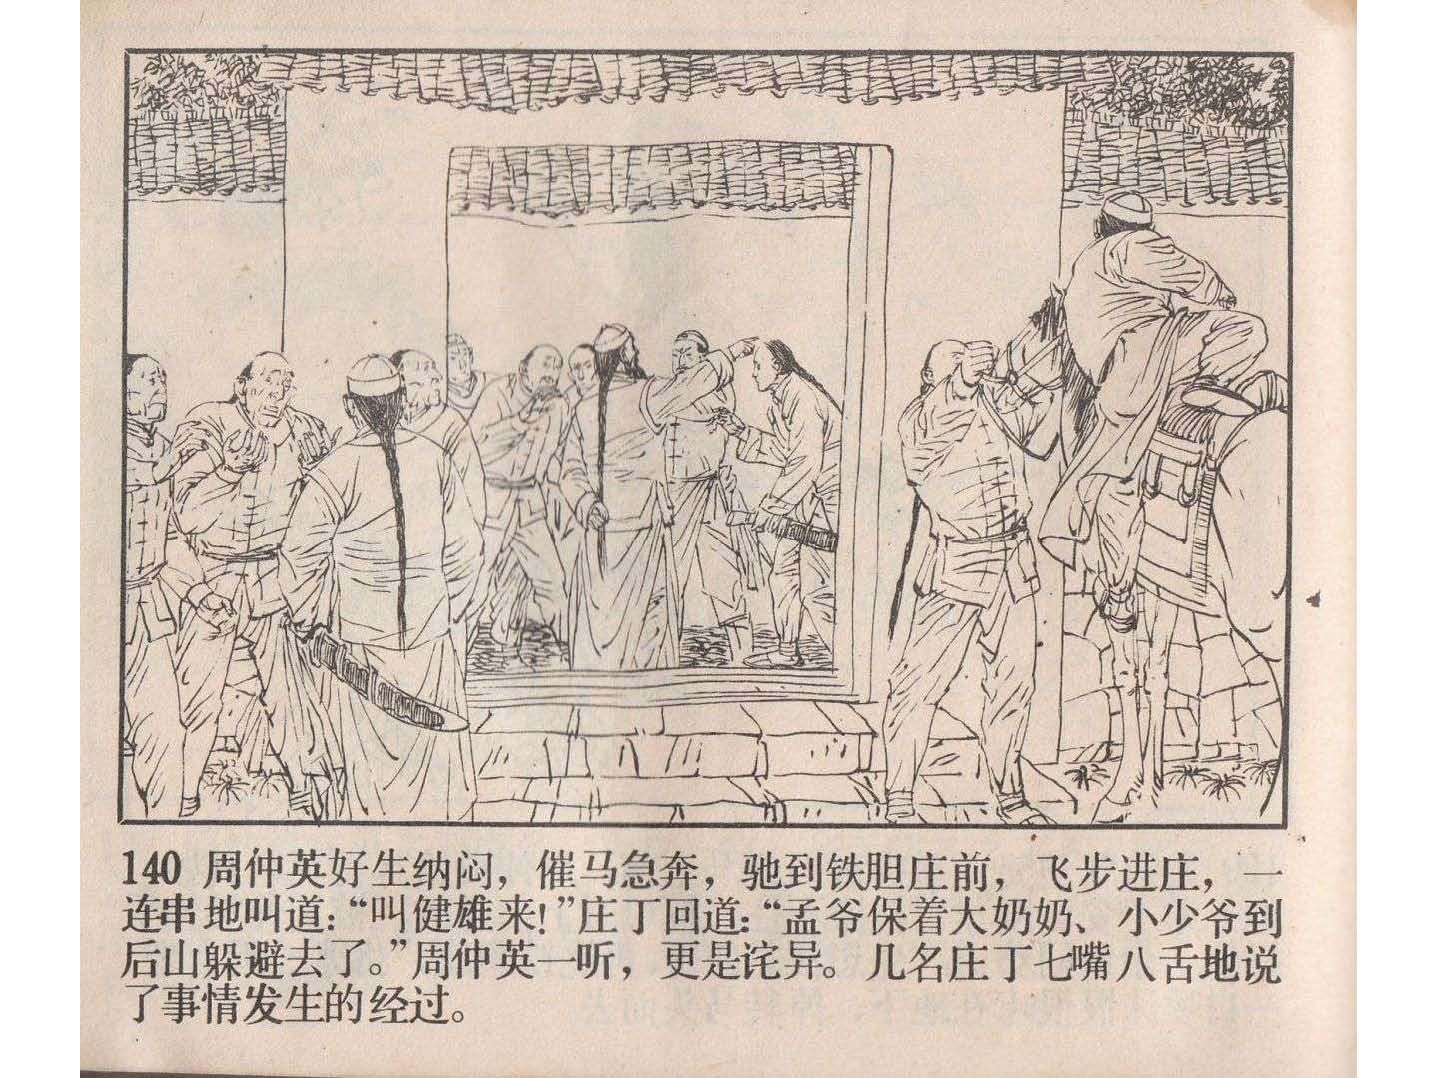 140 周仲英好生纳闷，催马急奔，驰到铁胆庄前，飞步进庄，一
连串地叫道：“叫健雄来！”庄丁回道：“孟爷保着大奶奶、小少爷到
后山躲避去了。”周仲英一听，更是诧异。几名庄丁七嘴八舌地说
了事情发生的经过。